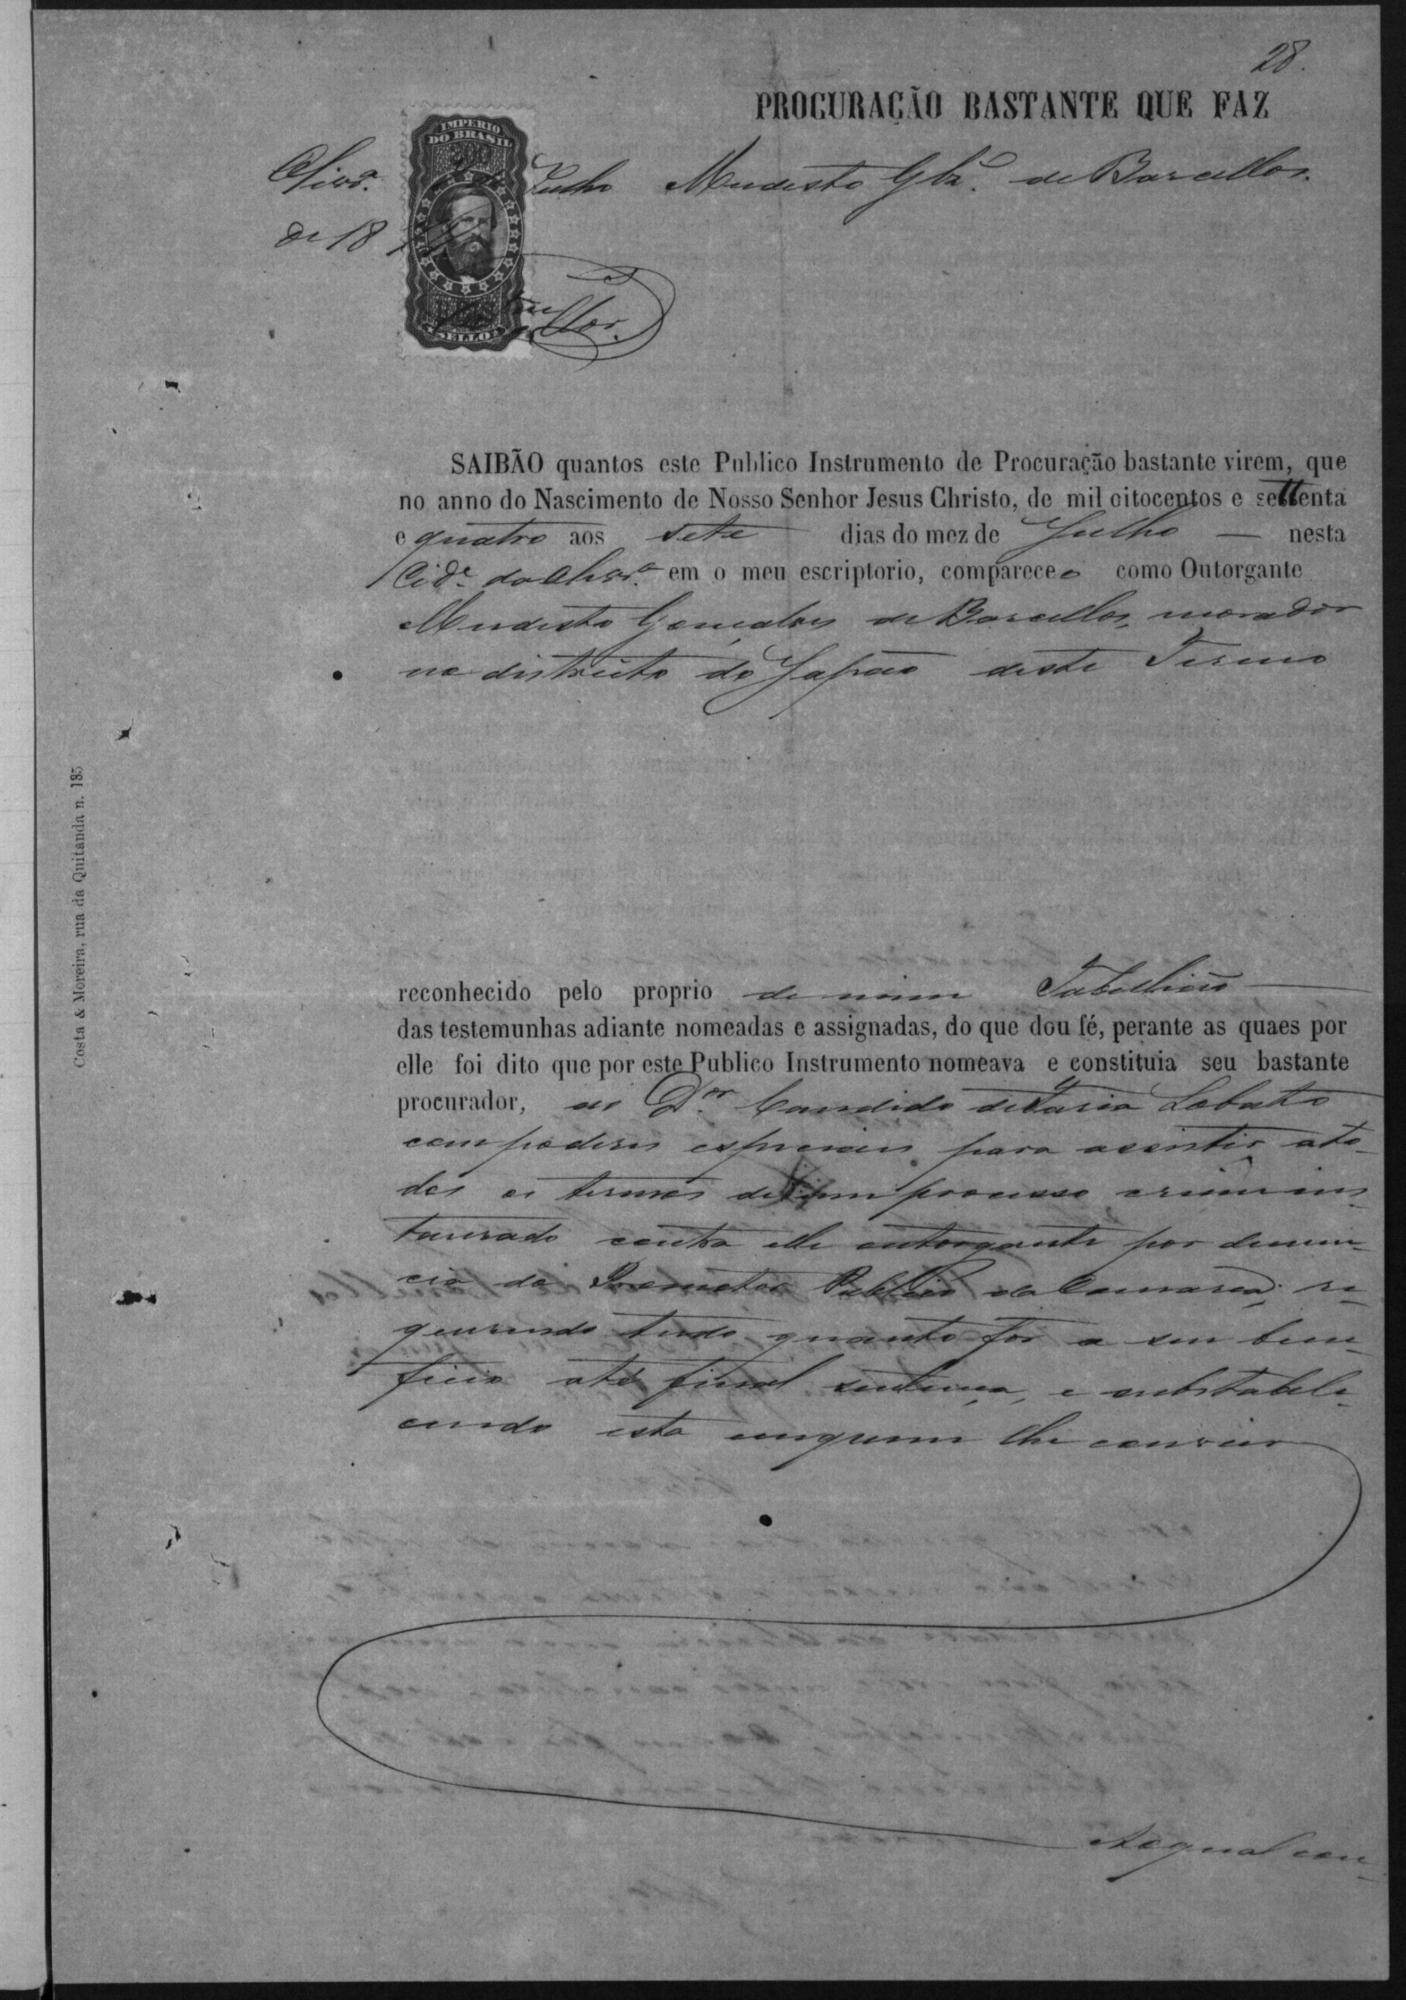 28.
PROCURAÇÃO BASTANTE QUE FAZ
IMPERIO
DO BRASIL
200
Olivrª. Julho Modesto Glz. de Barcellos.
de 18
SELLO
SAIBÃO quantos este Publico Instrumento de Procuração bastante virem, que
no anno do Nascimento de Nosso Senhor Jesus Christo, de mil oitocentos e settenta
e quatro aos sete dias do mez de Julho — nesta
Cidᵉ. da Olivrª. em o meu escriptorio, compareceo como Outorgante
Modesto Gonçalves de Barcellos, morador
no districto do Japão deste Termo
reconhecido pelo proprio de mim Tabellião
das testemunhas adiante nomeadas e assignadas, do que dou fé, perante as quaes por
elle foi dito que por este Publico Instrumento nomeava e constituia seu bastante
procurador, ao Dor. Candido de Faria Lobato
com poderes especiais para assistir ato-
dos os termos de um processo crime ins-
taurado contra elle outorgante por denun-
cia do Promotor Publico da Comarca, re-
querendo tudo quanto for a seu bene-
ficio até final sentença, e substabele-
cendo esta em quem lhe convier
Aoqual con-
Costa & Moreira, rua da Quitanda n. 135